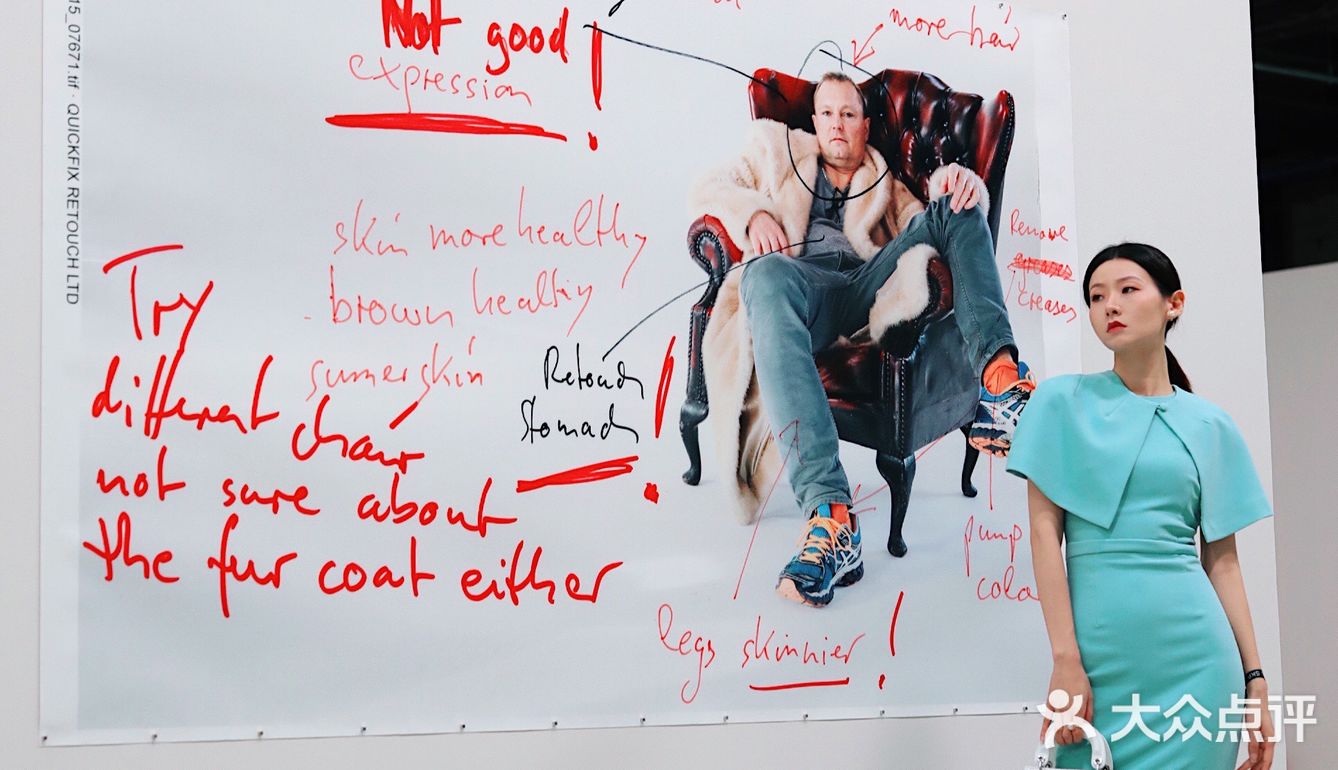 15_07671.tif · QUICKFIX RETOUCH LTD
Not good!
expression
more hair
skin more healthy
brown healthy
sumer skin
Remove
creases
Try
different chair
not sure about
the fur coat either
Retouch
Stomach!
pump
legs skinnier!
大众点评